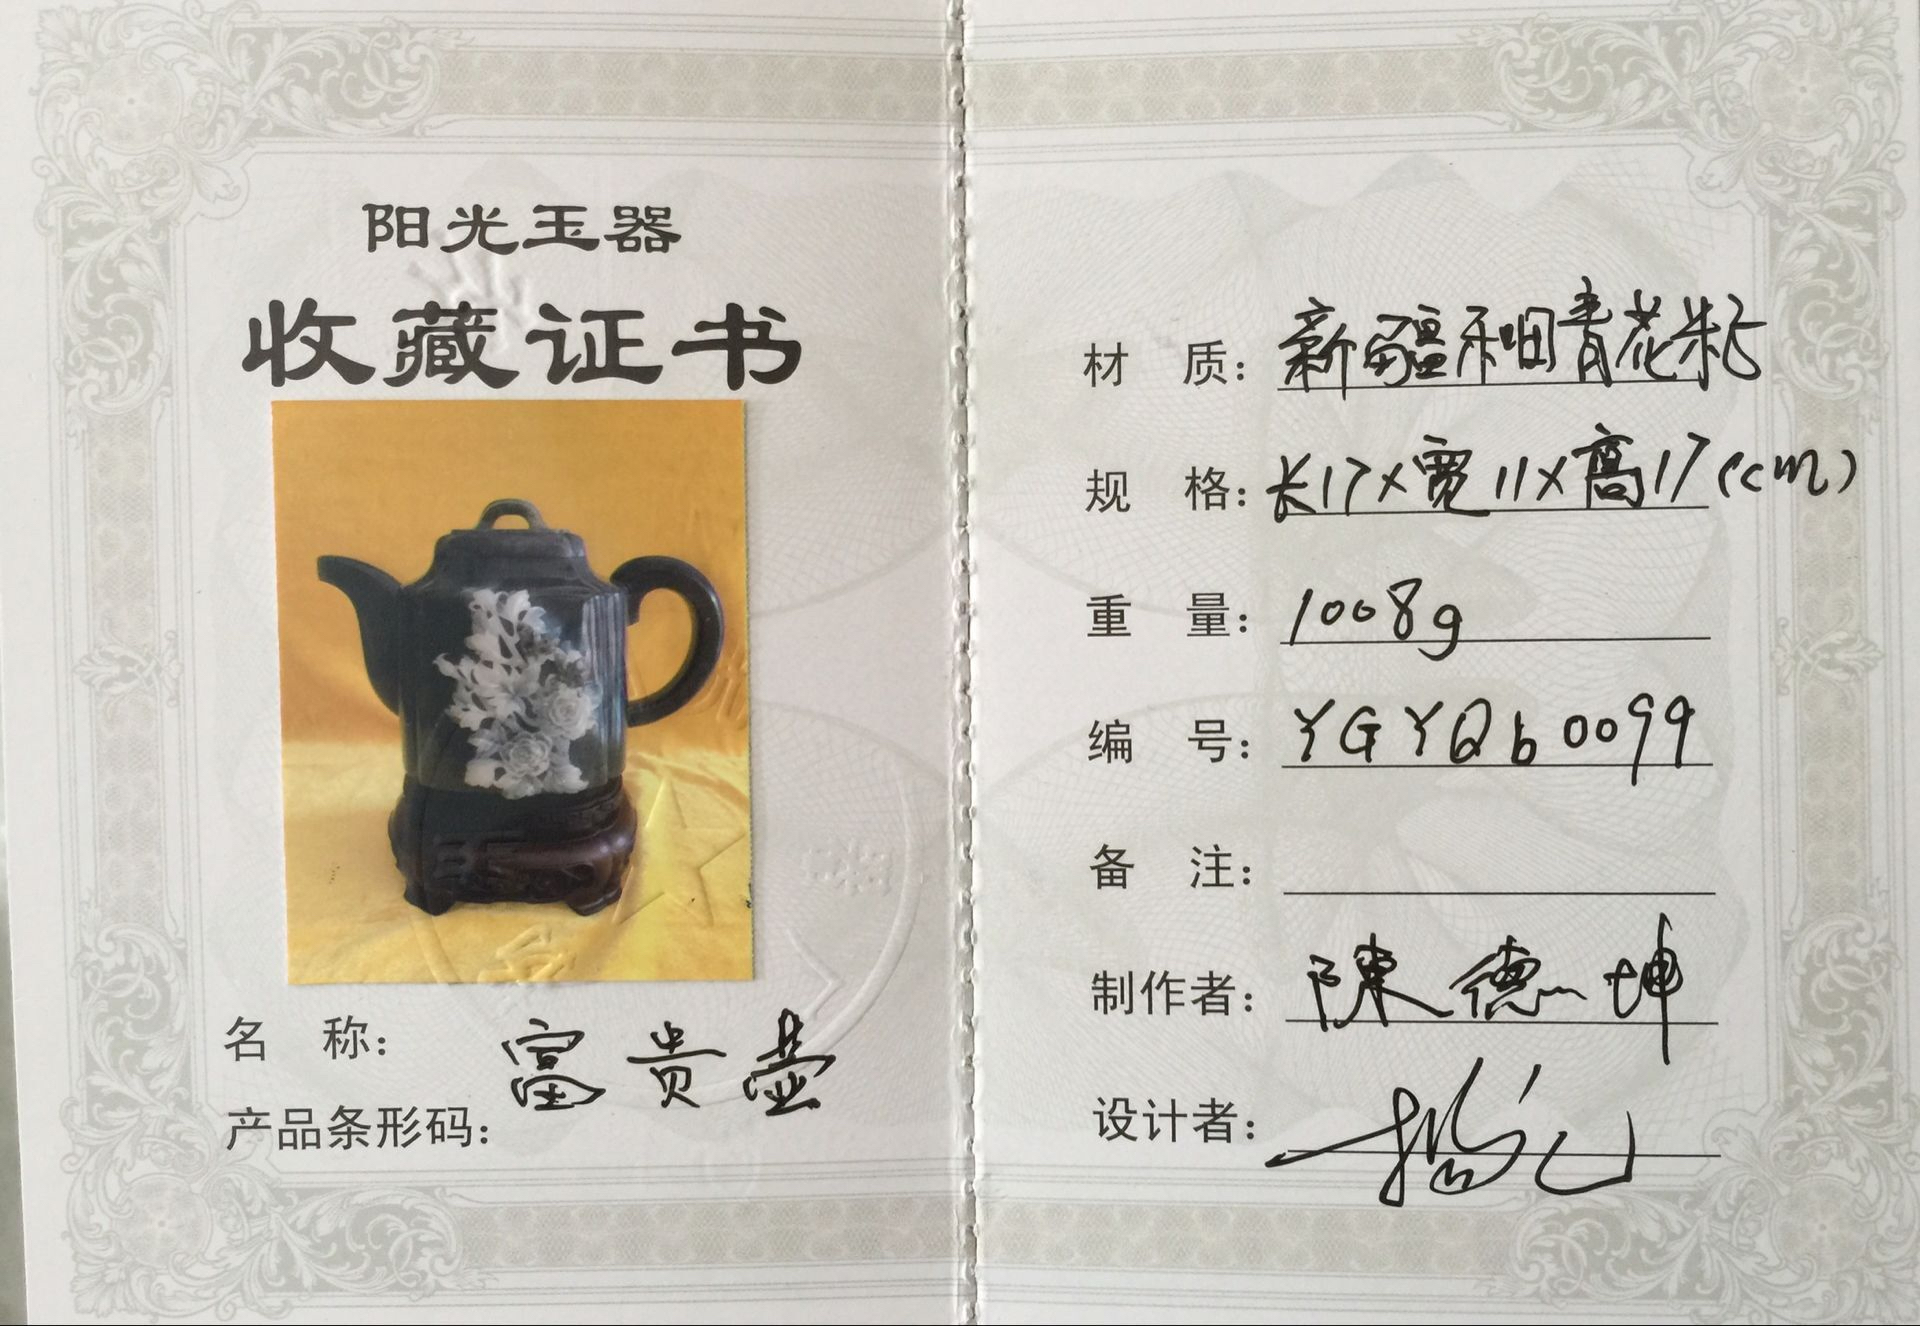 阳光玉器
收藏证书
名 称: 富贵壶
产品条形码:
材 质: 新疆和田青花籽
规 格: 长17×宽11×高17(cm)
重 量: 1008g
编 号: YGYQb0099
备 注:
制作者: 陳德坤
设计者: